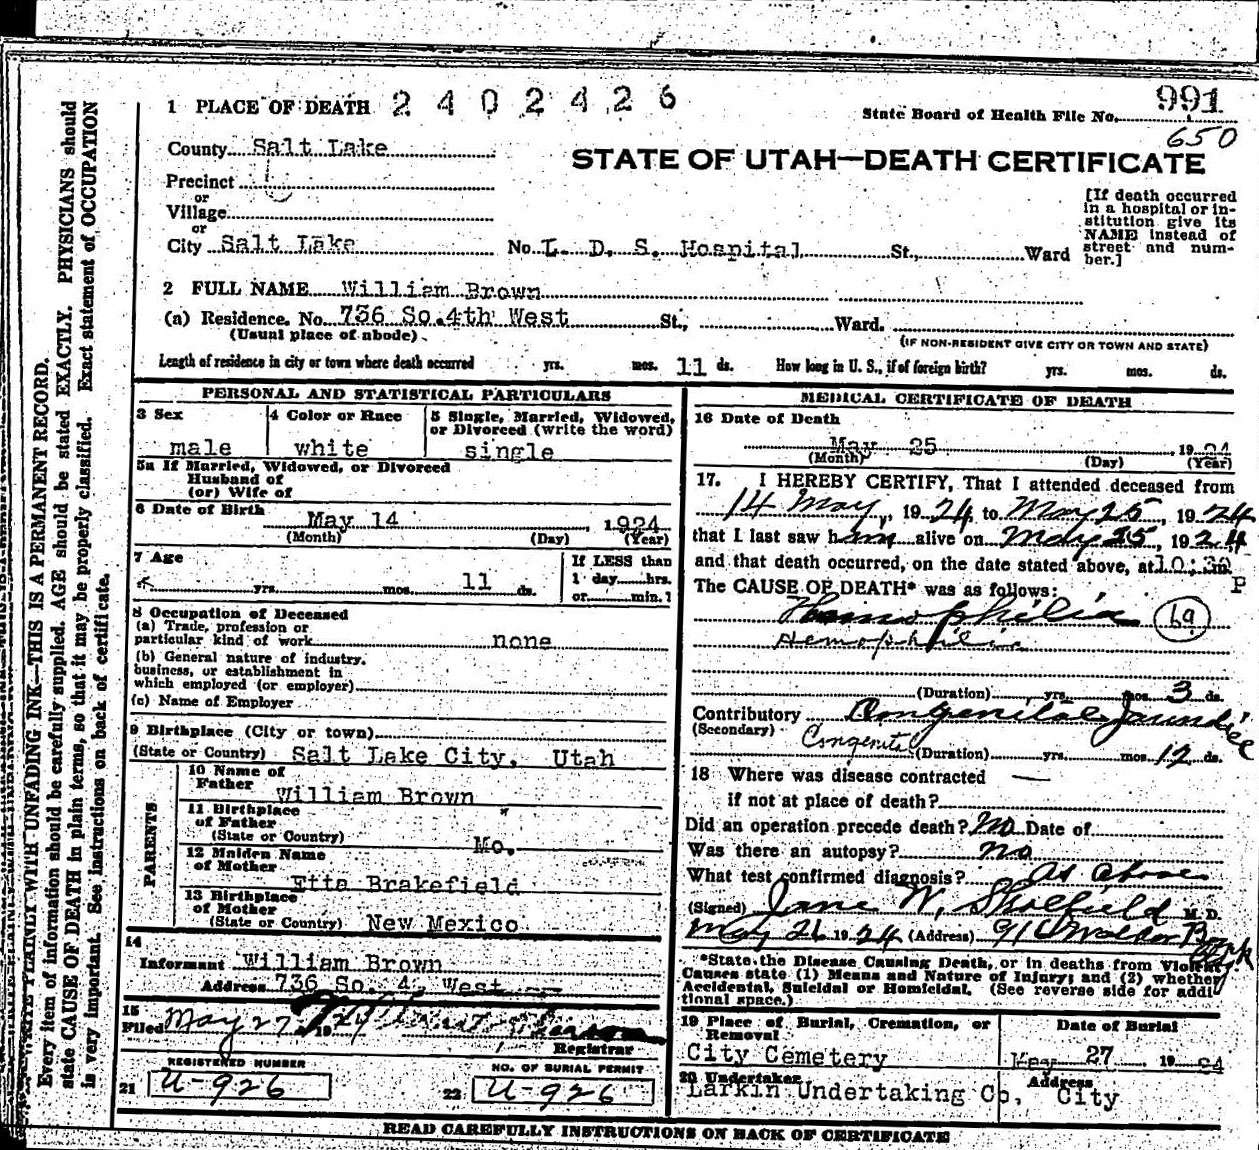 1 PLACE OF DEATH 2402426
State Board of Health File No. 991
650
County Salt Lake
STATE OF UTAH—DEATH CERTIFICATE
Precinct
or
Village
or
City Salt Lake No. L. D. S. Hospital St., Ward
[If death occurred
in a hospital or in-
stitution give its
NAME instead of
street and num-
ber.]
2 FULL NAME William Brown
(a) Residence. No. 736 So. 4th West St., Ward.
(Usual place of abode)
(IF NON-RESIDENT GIVE CITY OR TOWN AND STATE)
Length of residence in city or town where death occurred yrs. mos. 11 ds. How long in U. S., if of foreign birth? yrs. mos. ds.
PERSONAL AND STATISTICAL PARTICULARS
3 Sex
male
4 Color or Race
white
5 Single, Married, Widowed,
or Divorced (write the word)
single
5a If Married, Widowed, or Divorced
Husband of
(or) Wife of
6 Date of Birth
May 14, 1924
(Month) (Day) (Year)
7 Age
yrs. mos. 11 ds.
If LESS than
1 day hrs.
or min.
8 Occupation of Deceased
(a) Trade, profession or
particular kind of work none
(b) General nature of industry,
business, or establishment in
which employed (or employer)
(c) Name of Employer
9 Birthplace (City or town)
(State or Country) Salt Lake City, Utah
PARENTS
10 Name of
Father William Brown
11 Birthplace
of Father
(State or Country) Mo.
12 Maiden Name
of Mother
Etta Brakefield
13 Birthplace
of Mother
(State or Country) New Mexico
14
Informant William Brown
Address 736 So. 4, West
15
Filed May 27 1924
Registrar
REGISTERED NUMBER
21 U-926
NO. OF BURIAL PERMIT
22 U-926
MEDICAL CERTIFICATE OF DEATH
16 Date of Death
May 25, 1924
(Month) (Day) (Year)
17. I HEREBY CERTIFY, That I attended deceased from
14 May, 1924 to May 25, 1924
that I last saw him alive on May 25, 1924
and that death occurred, on the date stated above, at 10:30 P m.
The CAUSE OF DEATH* was as follows:
Hemophilia 69
Hemophilia
(Duration) yrs. mos. 3 ds.
Contributory Congenital Jaundice
(Secondary) Congenital (Duration) yrs. mos. 12 ds.
18 Where was disease contracted —
if not at place of death?
Did an operation precede death? No Date of
Was there an autopsy? no
What test confirmed diagnosis? As above
(Signed) Jane W. Skolfield M. D.
May 26 1924 (Address) 916 Walker Bank
*State the Disease Causing Death, or in deaths from Violent
Causes state (1) Means and Nature of Injury; and (2) whether
Accidental, Suicidal or Homicidal. (See reverse side for addi
tional space.)
19 Place of Burial, Cremation, or
Removal
City Cemetery
Date of Burial
May 27 1924
20 Undertaker
Larkin Undertaking Co,
Address
City
READ CAREFULLY INSTRUCTIONS ON BACK OF CERTIFICATE
WRITE PLAINLY WITH UNFADING INK—THIS IS A PERMANENT RECORD.
Every item of information should be carefully supplied. AGE should be stated EXACTLY. PHYSICIANS should
state CAUSE OF DEATH in plain terms, so that it may be properly classified. Exact statement of OCCUPATION
is very important. See instructions on back of certificate.